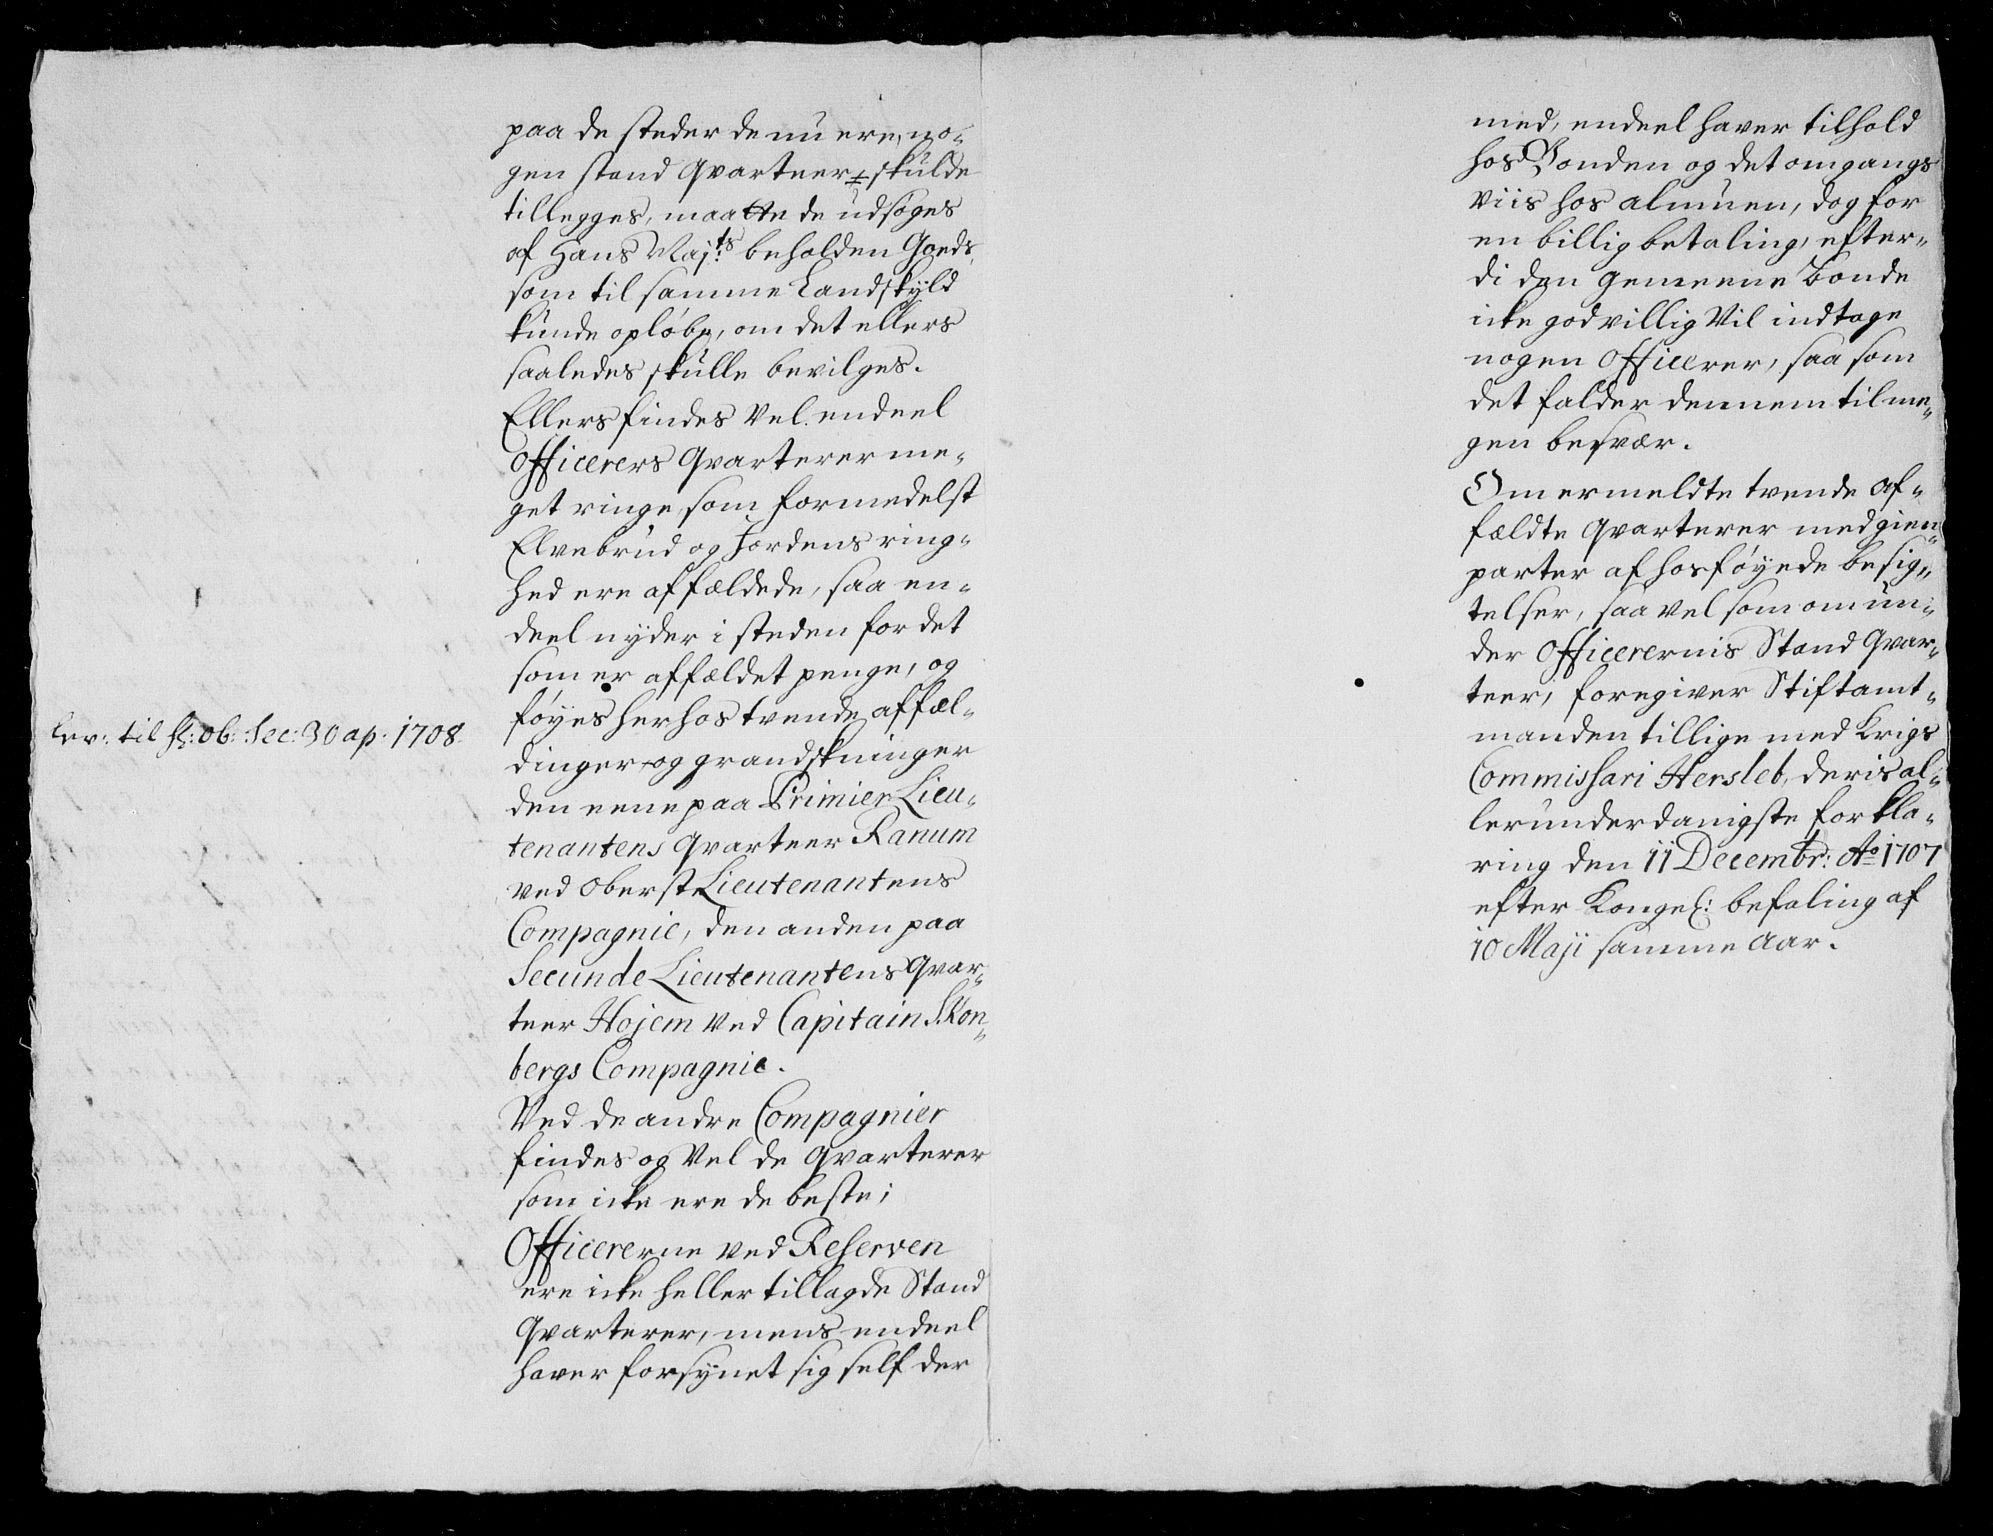 paa de steder de nu ere, no-
gen stand Qvarteer skulde
tillegges, maatte de udsøges
af Hans Maj:ts beholden Goeds,
som til samme Landskyld
kunde opløbe, om det ellers
saaledes skulle bevilges.
Ellers findes vel endeel
Officerers Qvarterer me-
get ringe, som formedelst
Elvebrud og Jordens ring-
hed ere affældede, saa en-
deel nyder i steden for det
som er affældet penge, og
føyes herhos tvende affæl-
dinger og grandskninger
den eene paa Primier Lieu-
tenantens Qvarteer Ranum
ved Oberst Lieutenantens
Compagnie, den anden paa
Secunde Lieutenantens Qvar-
teer Hojem ved Capitain S. Kon-
bergs Compagnie.
Ved de andre Compagnier
findes og vel de Qvarterer
som icke ere de beste;
Officererne ved Reserven
ere icke heller tillagde Stand
Qvarterer, mens endeel
haver forsynet sig self der
lev: til H: Ob: Sec: 30 ap. 1708.
med, endeel haver tilhold
hos Bonden og det omgangs
viis hos almuen, dog for
en billig betaling, efter-
di den gemeene Bonde
icke godvillig vil indtage
nogen Officerer, saa som
det falder dennem til me-
gen besvær.
Om ermeldte tvende af-
fældte Qvarterer med gien-
parter af hosføyede besig-
telser, saa vel som om un-
der Officerernis Stand Qvar-
teer, foregiver Stiftamt-
manden tillige med Krigs
Commissari Hersleb, deris al-
lerunderdanigste forkla-
ring den 11 Decembr: Ao 1707
efter Kongel: befaling af
10 Maji samme Aar.